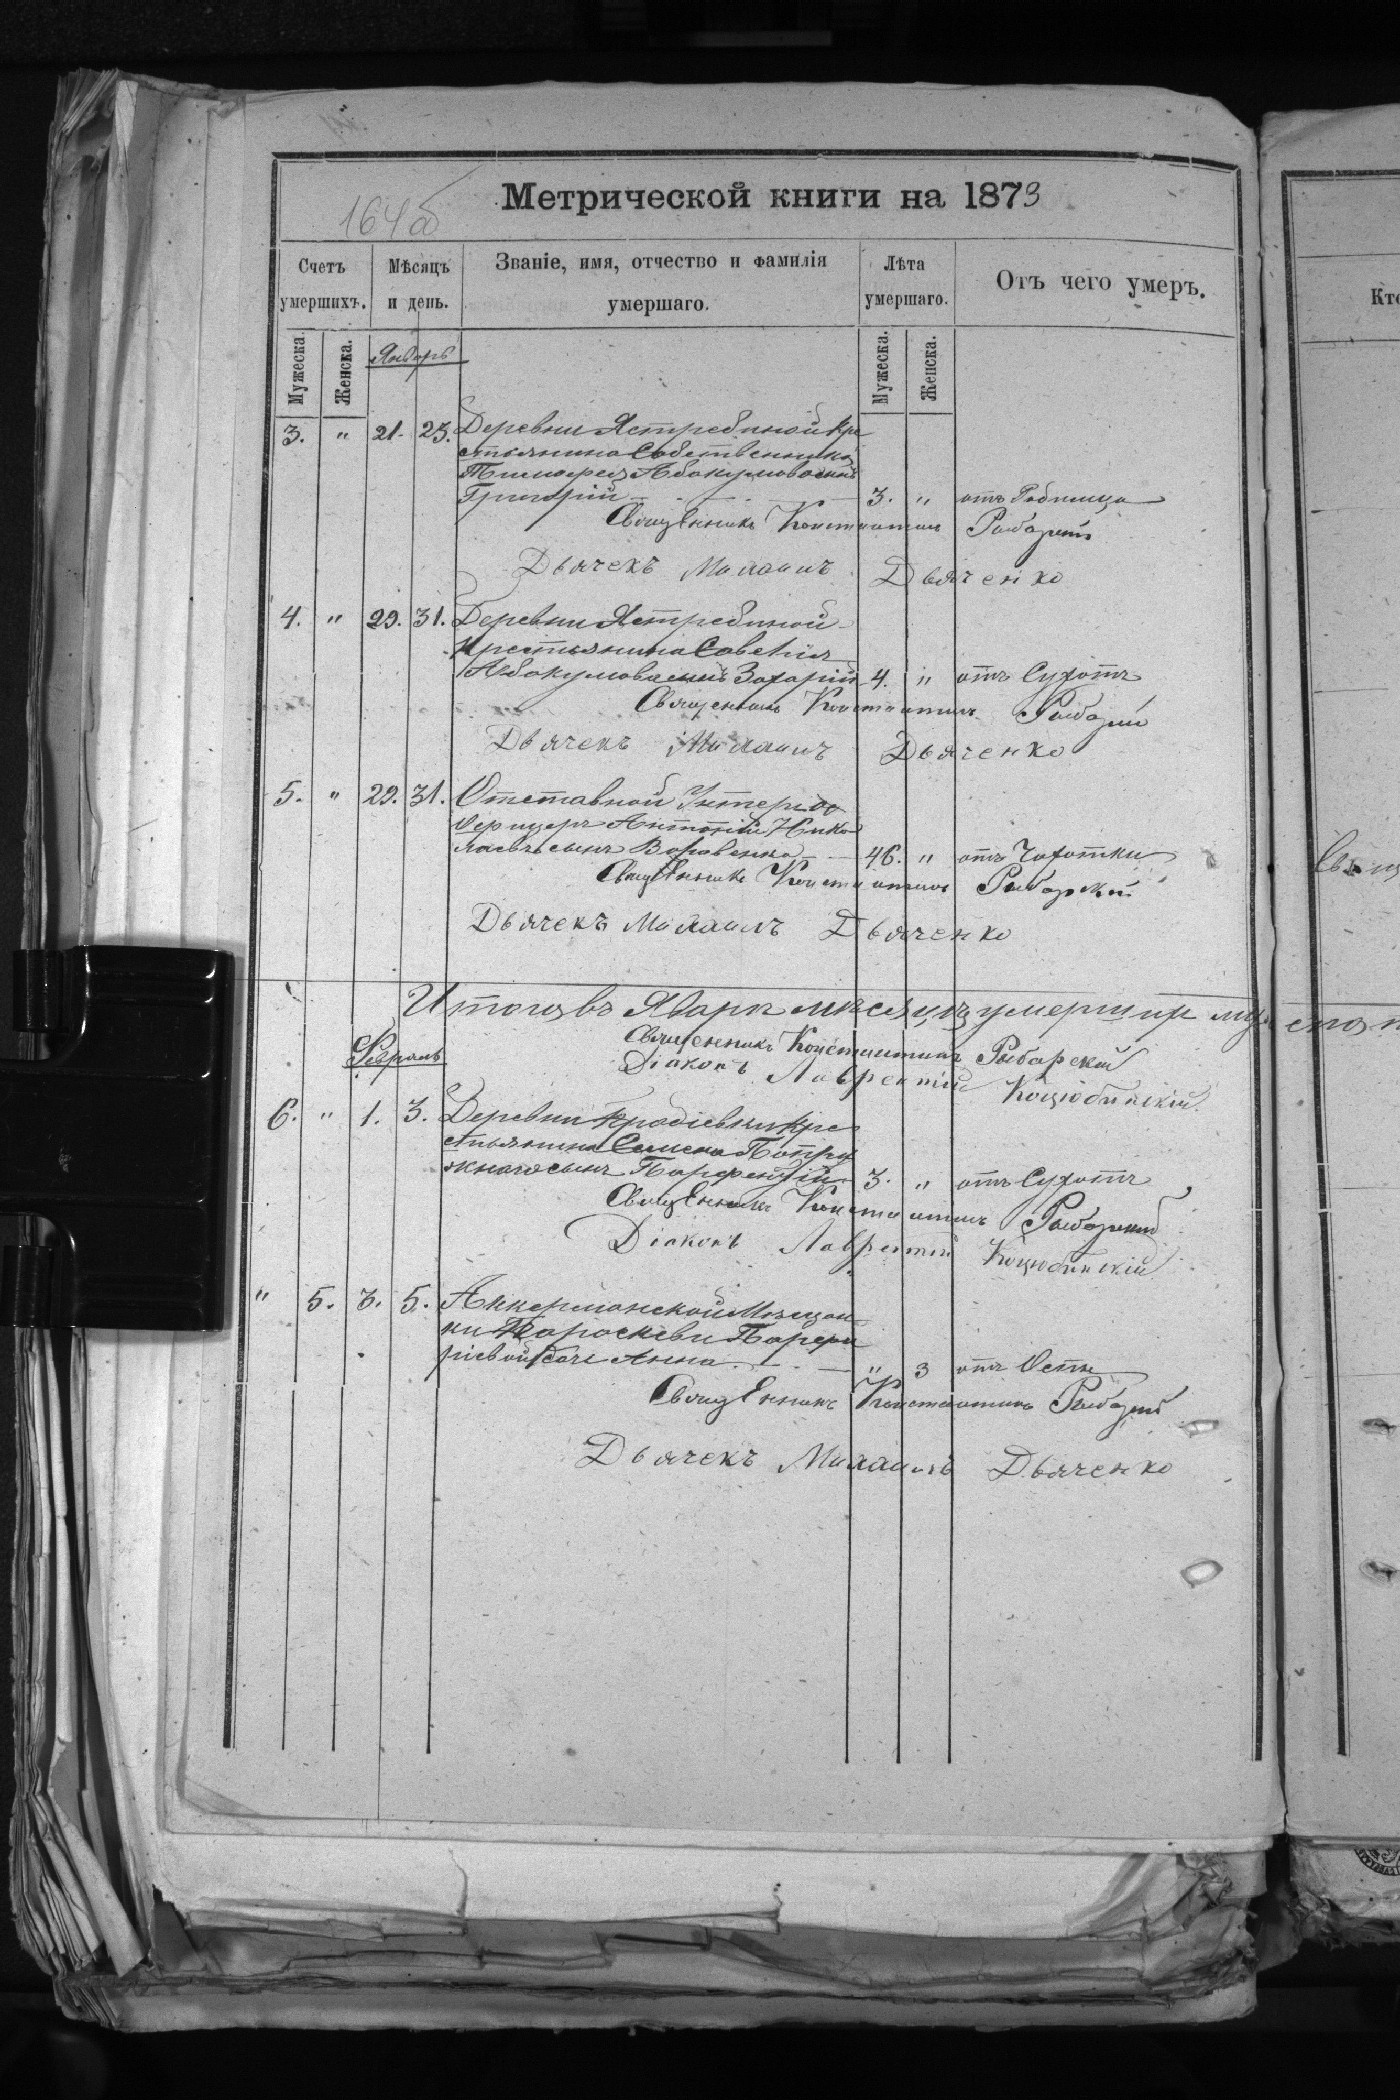 164 об
Метрической книги на 1873
Счетъ умершихъ.
Мѣсяцъ и день.
Званіе, имя, отчество и фамилія умершаго.
Лѣта умершаго.
Отъ чего умеръ.
Мужеска.
Женска.
Мужеска.
Женска.
Январь
3. " 21. 23. Деревни Ястребиной кре
стьянина Собственника
Тимофея Абакумова сынъ
Григорій 3. " отъ
Священникъ Константинъ Рыбарскій
Дьячекъ Михаилъ Дьяченко
4. " 29. 31. Деревни Ястребиной
Крестьянина Савелія
Абакумова сынъ Захарій 4. " отъ Сухотъ
Священникъ Константинъ Рыбарскій
Дьячекъ Михаилъ Дьяченко
5. " 29. 31. Отставной Унтеръ
Офицеръ Антоній Нико
лаевъ сынъ 46. " отъ Чахотки
Священникъ Константинъ Рыбарскій
Дьячекъ Михаилъ Дьяченко
Итого въ мѣсяцѣ умерших
Священникъ Константинъ Рыбарскій
Діаконъ Лаврентій Коцюбинскій
Февраль
6. " 1. 3. Деревни кре
стьянина Семена Попру
жнаго сынъ Парфентій 3. " отъ Сухотъ
Священникъ Константинъ Рыбарскій
Діаконъ Лаврентій Коцюбинскій
" 5. 3. 5. Аккерманской Мѣщан
ки Параскевы Порфи
ріевой дочь Анна " 3 отъ Оспы
Священникъ Константинъ Рыбарскій
Дьячекъ Михаилъ Дьяченко
Кто